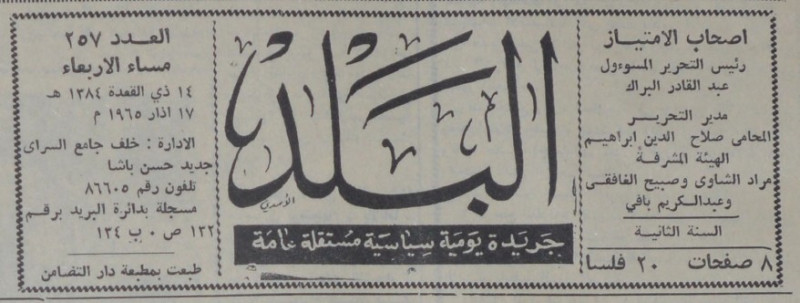 اصحاب الامتياز
رئيس التحرير المسوءول
عبد القادر البراك
مدير التحرير
المحامى صلاح الدين ابراهيم
الهيئة المشرفة
مراد الشاوى وصبيح الغافقى
وعبدالكريم باقي
السنة الثانية
٨ صفحات ٢٠ فلسا
البلد
الأسدي
جريدة يومية سياسية مستقلة عامة
العدد ٢٥٧
مساء الاربعاء
١٤ ذي القعدة ١٣٨٤ هـ
١٧ اذار ١٩٦٥ م
الادارة : خلف جامع السراى
جديد حسن باشا
تلفون رقم ٨٦٦٠٥
مسجلة بدائرة البريد برقم
١٢٢ ص ٠ ب ١٣٤
طبعت بمطبعة دار التضامن